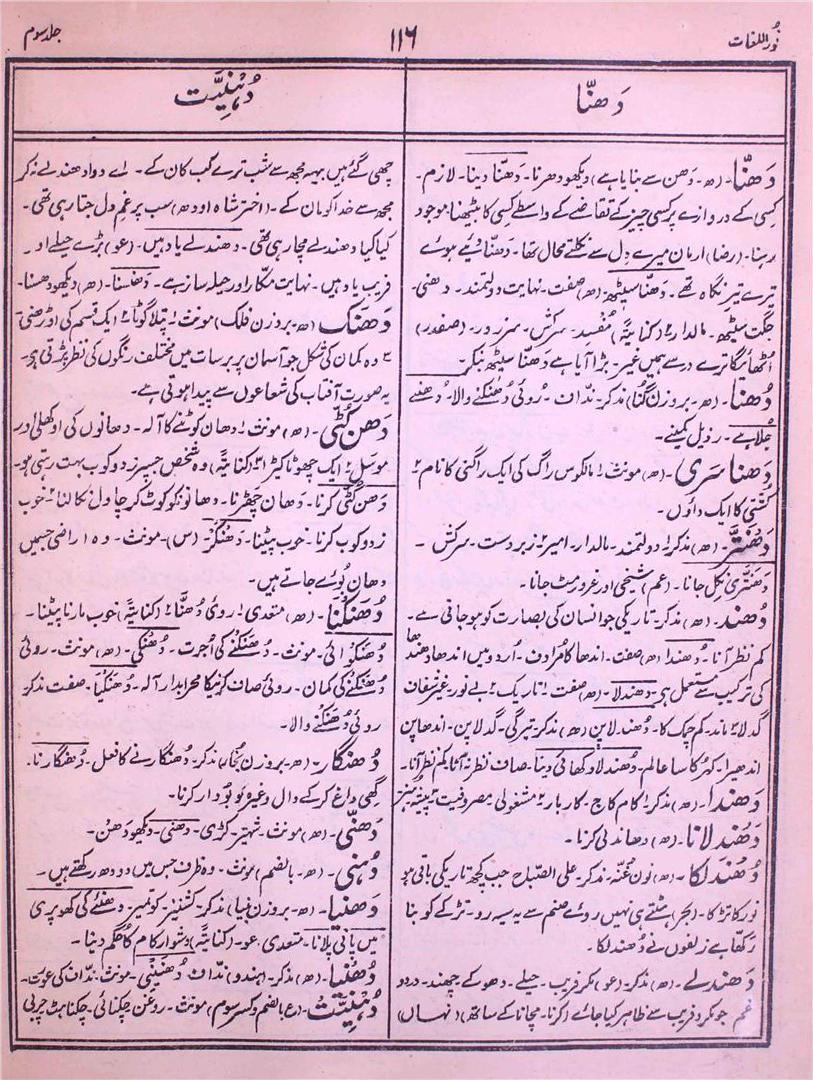 نُور اللغات
۱۱۶
جلد سوم
دَھنّا
دُہنِیَّت
دَھنّا۔ (ھ۔ دَھن سے بنایا ہے) دیکھو دھرنا۔ دَھنّا دینا۔ لازم۔
کسی کے دروازے پر کسی چیز کے تقاضے کے واسطے کسی کا بیٹھنا موجود
رہنا۔ (رضا) ارمان میرے دل سے نکلتے محال تھا۔ دَھنّا دئیے ہوئے
تیرے تیر نگاہ تھے۔ دَھنّا سیٹھ۔ (ھ) صفت۔ نہایت دولتمند۔ دھنی۔
جگت سیٹھ۔ مالدار ۲ (کنایۃً) مُفسد۔ سرکش۔ سرزور۔ (صفدر)
اُٹھائیگا ترے در سے ہمیں غیر۔ بڑا آیا ہے دَھنّا سیٹھ بنکر۔
دُھنا۔ (ھ۔ بروزن گُنا) مذکر۔ ندّاف۔ رُوئی دُھنکنے والا۔ دُھنیے
جُلاہے۔ رذیل کمینے۔
دَھناسری۔ (ھ) مونث ۱ مالکوس راگ کی ایک راگنی کا نام ۲
کُشتی کا ایک داؤں۔
دَھنتّر۔ (ھ) مذکر ۱ دولتمند۔ مالدار۔ امیر ۲ زبردست۔ سرکش۔
دَھنتّری نِکل جانا۔ (عم) شیخی اور غرور مٹ جانا۔
دُھند۔ (ھ) مذکر۔ تاریکی جو انسان کی بصارت کو ہوجاتی ہے۔
کم نظر آنا۔ دُھندا (ھ) صفت۔ اندھا کا مُرادف۔ اُردو میں اندھا دُھندھا
کی ترکیب سے مستعمل ہے۔ دُھندلا۔ (ھ) صفت ۱ تاریک ۲ بے نور۔ غیر شفان
گدلا ۳ ماند۔ کم چمک کا۔ دُھندلاپن (ھ) مذکر۔ تیرگی۔ گدلاپن۔ اندھاپن
اندھیرا۔ کُہر کا سا عالم۔ دُھندلا دِکھائی دینا۔ صاف نظر نہ آنا۔ کم نظر آنا۔
دَھندا۔ (ھ) مذکر ۱ کام کاج۔ کاربار ۲ مشغولی۔ مصروفیت ۳ پیشہ۔ ہنر
دَھندلانا۔ (ھ) دھاندلی کرنا۔
دُھندلکا۔ (ھ) نون غُنّہ۔ مذکر۔ علی الصّباح جب کچھ تاریکی باقی ہو
نور کا تڑکا۔ (بحر) ہٹتے ہی نہیں روئے صنم سے یہ سیہ رو۔ تڑکے کو بنا
رکھا ہے زلفوں نے دُھندلکا۔
دَھندلے۔ (ھ) مذکر۔ (عو) مکر فریب۔ حیلے۔ دھوکے۔ چھند۔ دردو
غم جو مکر و فریب سے ظاہر کیا جائے (کرنا۔ مچانا کے ساتھ) (نہاں)
چھی گئے ہیں ببہہ مجھ سے شب ترے گہب کان کے۔ اے ددا دھندلے نہ کر
مجھ سے خدا کو مان کے۔ (اختر شاہ اودھ) سب پر غم دل جتا رہی تھی۔
کیا کیا دھندلے مچا رہی تھی۔ دھندلے یاد ہیں۔ (عو) بڑے حیلے اور
فریب یاد ہیں۔ نہایت مکّار اور حیلہ ساز ہے۔ دَھنسنا۔ (ھ) دیکھو دھسنا۔
دَھنک (ھ۔ بروزن فلک) مونث ۱ پتلا گوٹا ۲ ایک قسم کی اوڑھنی
۳ وہ کمان کی شکل جو آسمان پر برسات میں مختلف رنگوں کی نظر پڑتی ہے۔
یہ صورت آفتاب کی شعاعوں سے پیدا ہوتی ہے۔
دَھن کُٹّی۔ (ھ) مونث ۱ دھان کوٹنے کا آلہ۔ دھانوں کی اوکھلی اور
موسل ۲ ایک چھوٹا کیڑا ۳ (کنایۃً) وہ شخص جسپر زد و کوب بہت رہتی ہو۔
دَھن کُٹّی کرنا۔ دھان چھڑنا۔ دھانونکو کوٹ کر چاول نکالنا ۲ خوب
زدوکوب کرنا۔ خوب پیٹنا۔ دَھنکر۔ (س)۔ مونث۔ وہ اراضی جسمیں
دھان بُوئے جاتے ہیں۔
دُھنکنا۔ (ھ) متعدی ۱ روئی دُھننا ۲ (کنایۃً) خوب مارنا پیٹنا۔
دُھنکوائی۔ مونث۔ دُھنکنے کی اُجرت۔ دُھنکی۔ (ھ) مونث۔ روئی
دُھنکنے کی کمان۔ روئی صاف کرنیکا محرابدار آلہ۔ دُھنکیا۔ صفت مذکر
روئی دُھنکنے والا۔
دُھنگار۔ (ھ۔ بروزن بُخار) مذکر۔ دُھنگارنے کا فعل۔ دُھنگارنا۔
گھی داغ کر کے دال وغیرہ کو بودار کرنا۔
دَھنّی۔ (ھ) مونث۔ شہتیر۔ کڑی۔ دَھنی۔ دیکھو دَھن۔
دُہنی۔ (ھ۔ بالضم) مونث۔ وہ ظرف جس میں دودھ رکھتے ہیں۔
دَھنیا۔ (ھ۔ بروزن بنیا) مذکر۔ کشنیز۔ کوتمیر۔ دھنئے کی کھوپری
میں پانی پلانا۔ متعدی۔ عو۔ (کنایۃً) دشوار کام کا حکم دینا۔
دُھنیا۔ (ھ) مذکر۔ (ہندو) ندّاف۔ دُھنینی۔ مونث۔ ندّاف کی عورت۔
دُہنِیَّت۔ (ع بالضم و کسر سوم) مونث۔ روغن۔ چکنائی۔ چکناہٹ۔ چربی